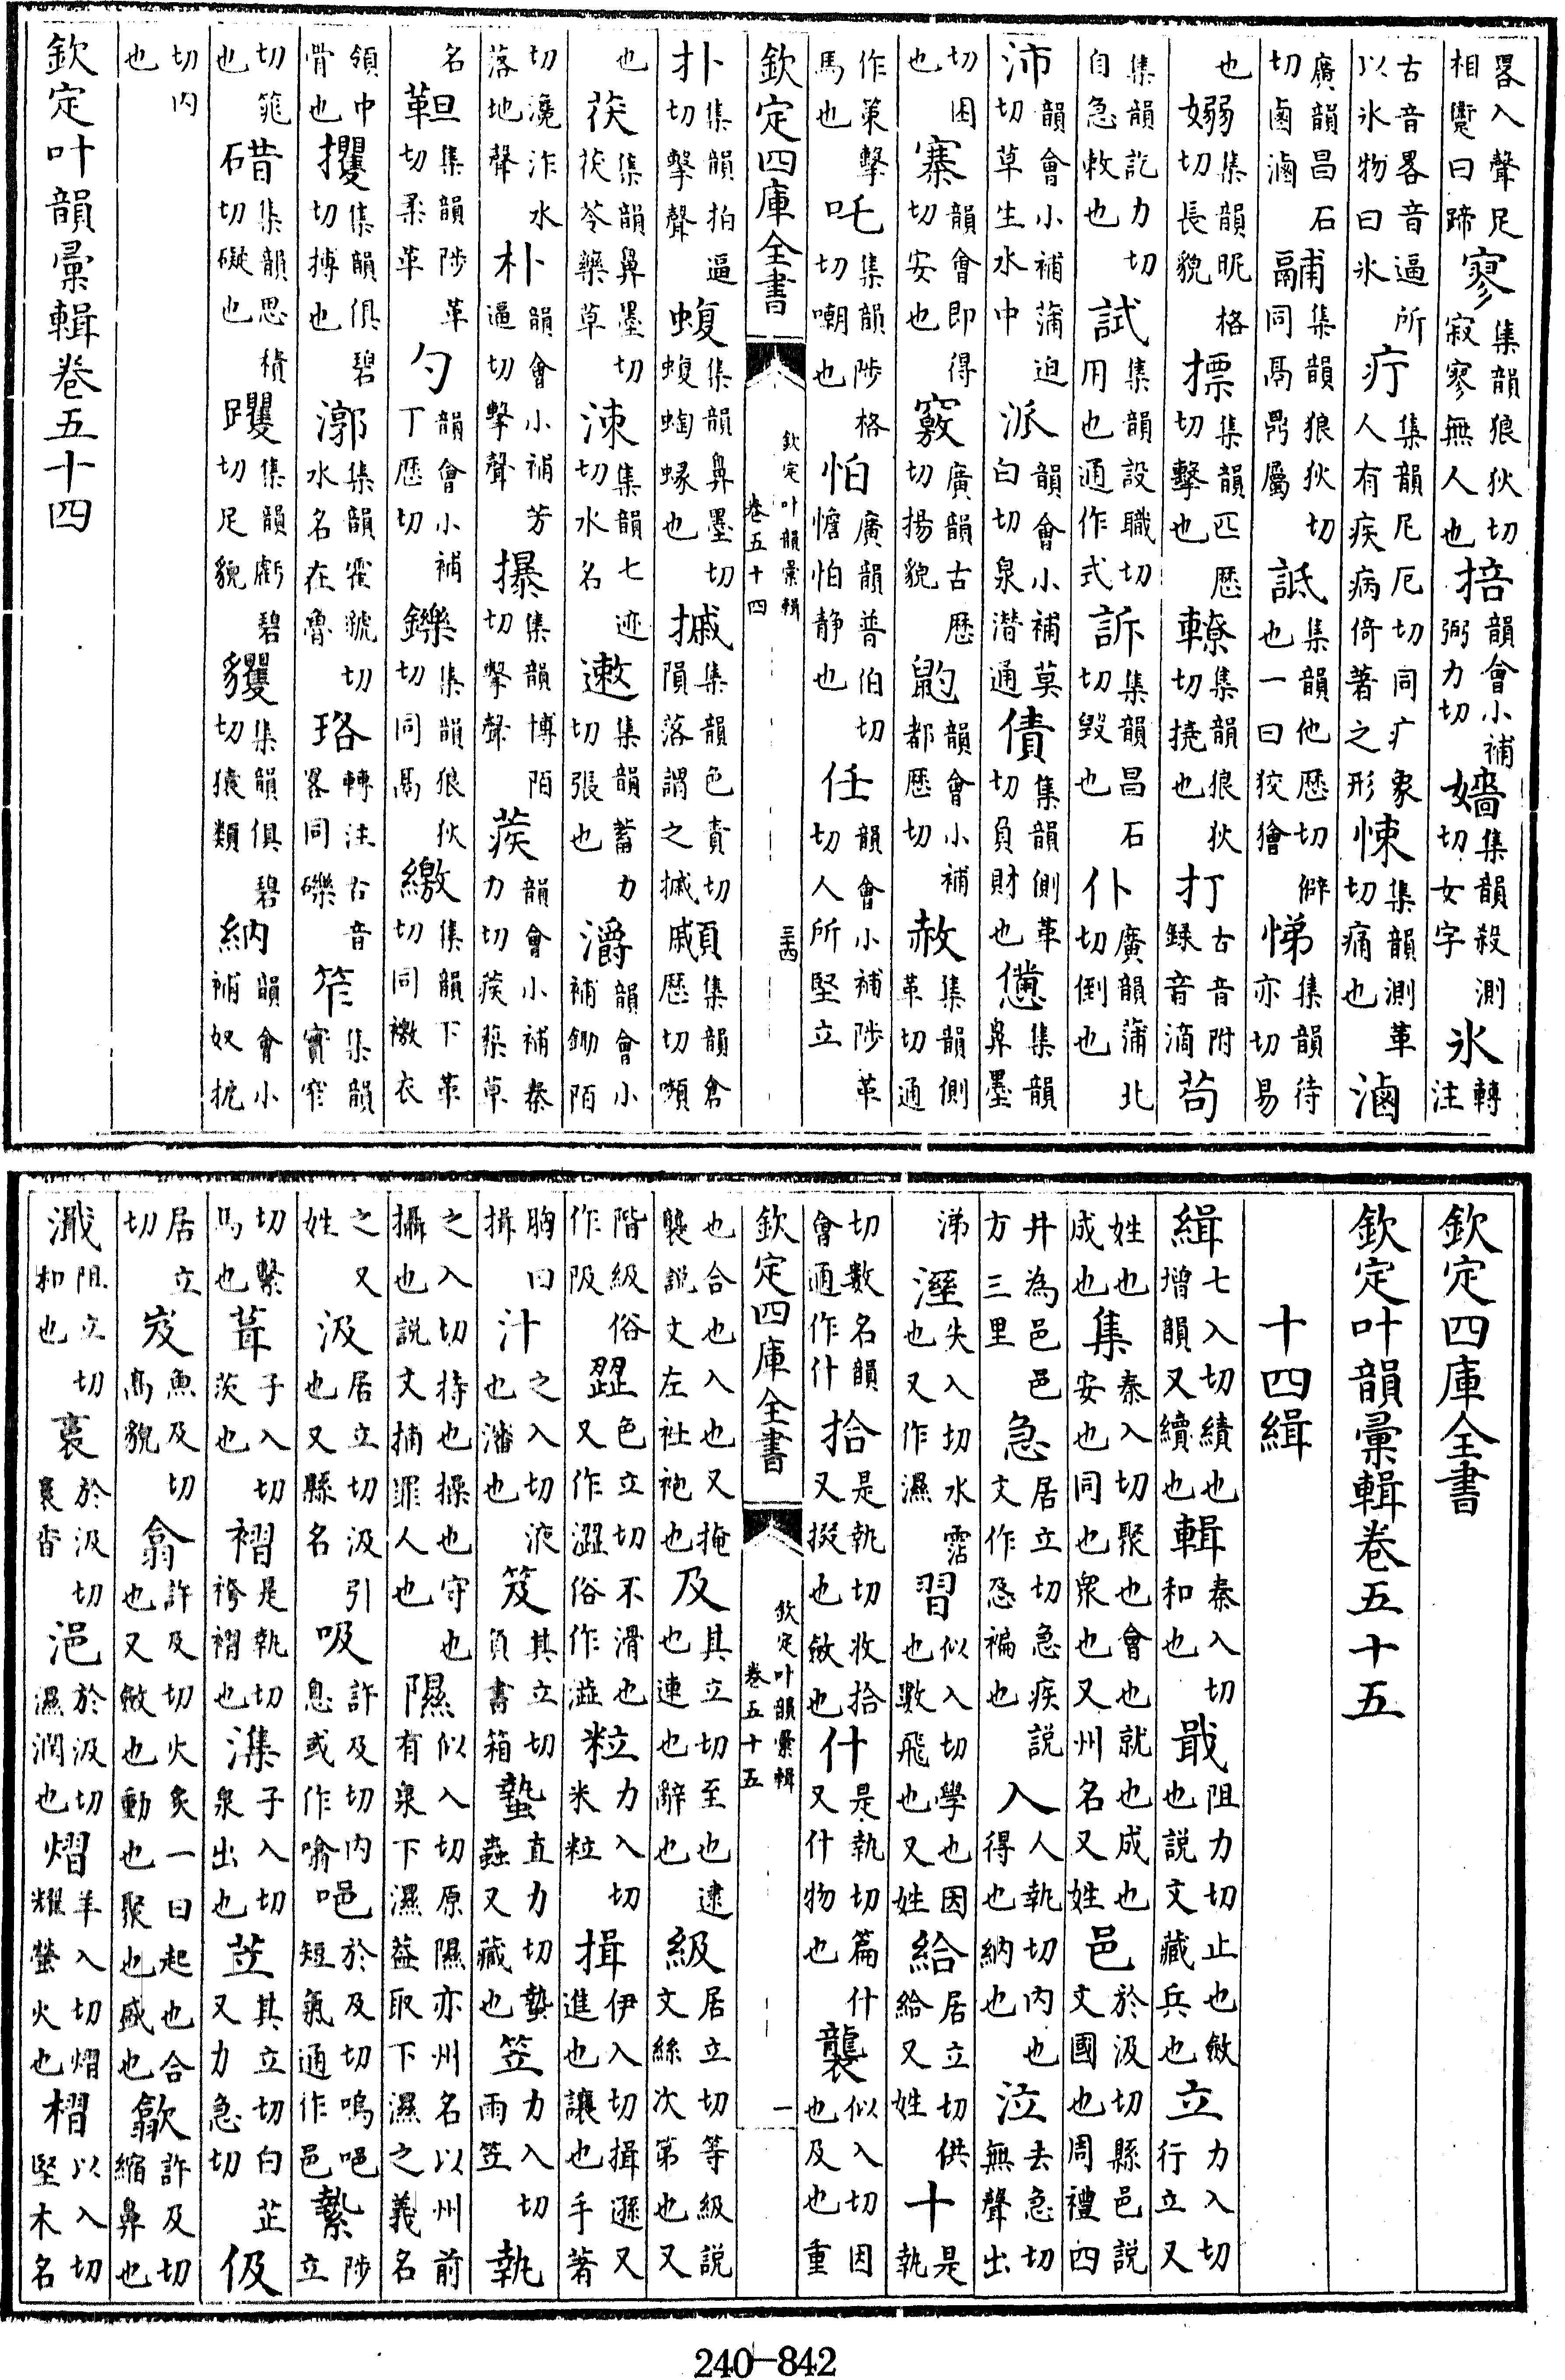 畧入聲足相躗曰蹄寥集韻狼狄切寂寥無人也掊韻會小補弼力切嬙集韻殺測切女字氷轉注
古音畧音逼所以氷物曰氷疔集韻尼厄切同疒象人有疾病倚著之形㥽集韻測革切痛也滷
廣韻昌石切鹵滷䰙集韻狼狄切同鬲鼎屬詆集韻他歷切僻也一曰狡獪悌集韻待亦切易
也嫋集韻昵格切長貌摽集韻匹歷切擊也轑集韻狼狄切撓也打古音附録音滴茍
集韻訖力切自急敕也試集韻設職切用也通作式訴集韻昌石切毀也仆廣韻蒲北切倒也
沛韻會小補蒲迫切草生水中派韻會小補莫白切泉潛通債集韻側革切負財也憊集韻鼻墨
切困也寨韻會即得切安也竅廣韻古歷切揚貌䶂韻會小補都歷切赦集韻側革切通
作策擊馬也吒集韻陟格切嘲也怕廣韻普伯切憺怕静也任韻會小補陟革切人所堅立
欽定四庫全書 欽定叶韻彙輯 卷五十四 三四
扑集韻拍逼切擊聲蝮集韻鼻墨切蝮蜪蝝也摵集韻色責切隕落謂之摵顣集韻倉歷切嚬
也茯集韻鼻墨切茯苓藥草涑集韻七迹切水名遬集韻蓄力切張也灂韻會小補鋤陌
切瀺泎水落地聲朴韻會小補芳逼切擊聲㩧集韻博陌切擊聲蒺韻會小補秦力切蒺藜草
名靼集韻陟革切柔革勺韻會小補丁歷切鑠集韻狼狄切同鬲繳集韻下革切同襒衣
領中骨也攫集韻俱碧切搏也漷集韻霍虢切水名在魯珞轉注古音畧同礫笮集韻實窄
切筰也碏集韻思積切礙也躩集韻虧碧切足貌貜集韻俱碧切猿類納韻會小補奴挖
切内也
欽定叶韻彙輯卷五十四
欽定四庫全書
欽定叶韻彙輯卷五十五
十四緝
緝七入切績也增韻又續也輯秦入切和也戢阻力切止也斂也說文藏兵也立力入切行立又
姓也成也集秦入切聚也會也就也成也安也同也衆也又州名又姓邑於汲切縣邑說文國也周禮四
井為邑邑方三里急居立切急疾說文作㤂褊也入人執切内也得也納也泣去急切無聲出
涕溼失入切水霑也又作濕習似入切學也因也數飛也又姓給居立切供給又姓十是執
切數名韻會通作什拾是執切收拾又掇也斂也什是執切篇什又什物也襲似入切因也及也重
也合也入也又掩襲說文左衽袍也及其立切至也逮也連也辭也級居立切等級說文絲次第也又
欽定四庫全書 欽定叶韻彙輯 卷五十五 一
階級俗作阪澀色立切不滑也又作澀俗作澁粒力入切米粒揖伊入切揖遜又進也讓也手著
胸曰揖汁之入切液也瀋也笈其立切負書箱蟄直力切蟄蟲又藏也笠力入切雨笠執
之入切持也操也守也攝也說文捕罪人也隰似入切原隰亦州名以州前有泉下濕蓋取下濕之義名
之又姓汲居立切汲引也又縣名吸許及切内息或作噏唈於及切嗚唈短氣通作邑縶陟立
切繫馬也葺子入切茨也褶是執切袴褶也潗子入切泉出也芨其立切白芷又力急切伋
居立切岌魚及切高貌翕許及切火炙一曰起也合也又斂也動也聚也盛也歙許及切縮鼻也
濈阻立切和也裛於汲切裛香浥於汲切濕潤也熠羊入切熠耀螢火也槢以入切堅木名
240-842